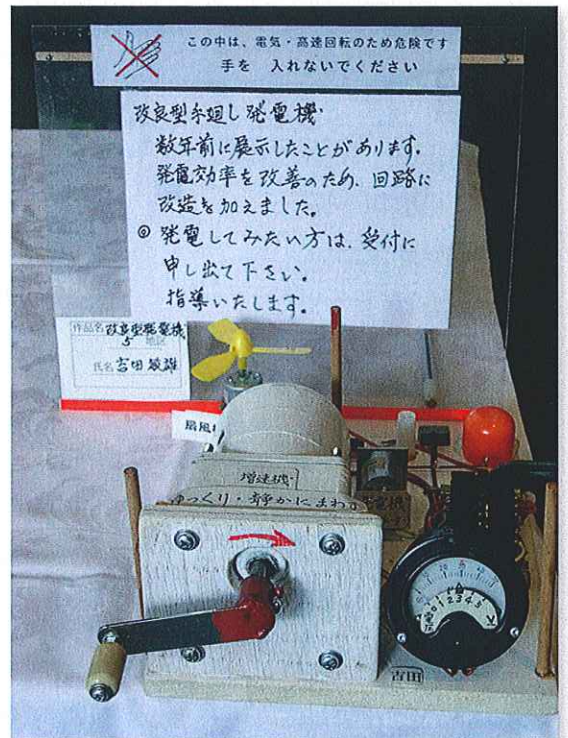 この中は、電気・高速回転のため危険です
手を 入れないでください
改良型手廻し発電機
数年前に展示したことがあります。
発電効率を改善のため、回路に
改造を加えました。
◎ 発電してみたい方は、受付に
申し出て下さい。
指導いたします。
作品名 改良型発電機
5 地区
氏名 吉田 敏雄
扇風
増速機
ゆっくり・静かにまわす
発電機
電圧
0 1 2 3 4 5
吉田